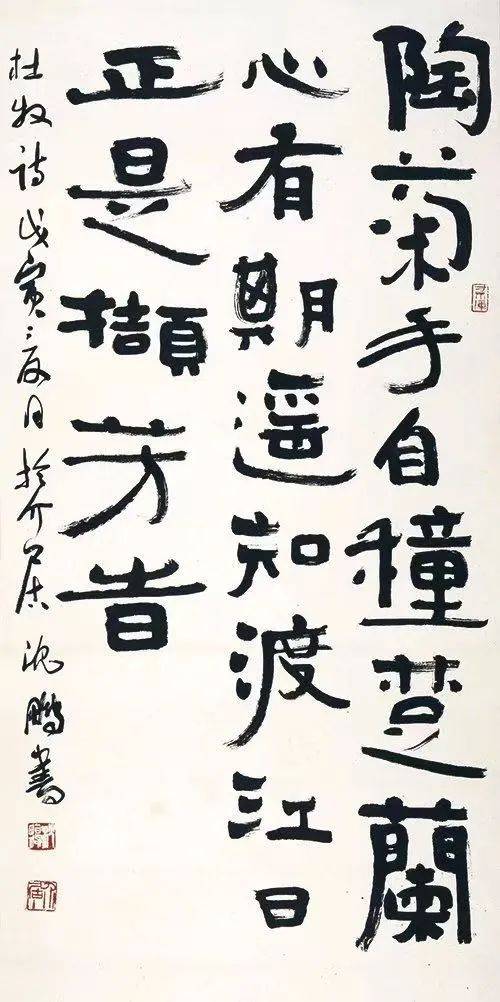 陶菊手自穜楚蘭
心有期遥知渡江日
正是擷芳旹
杜牧诗戊寅月於介居沈鵬書